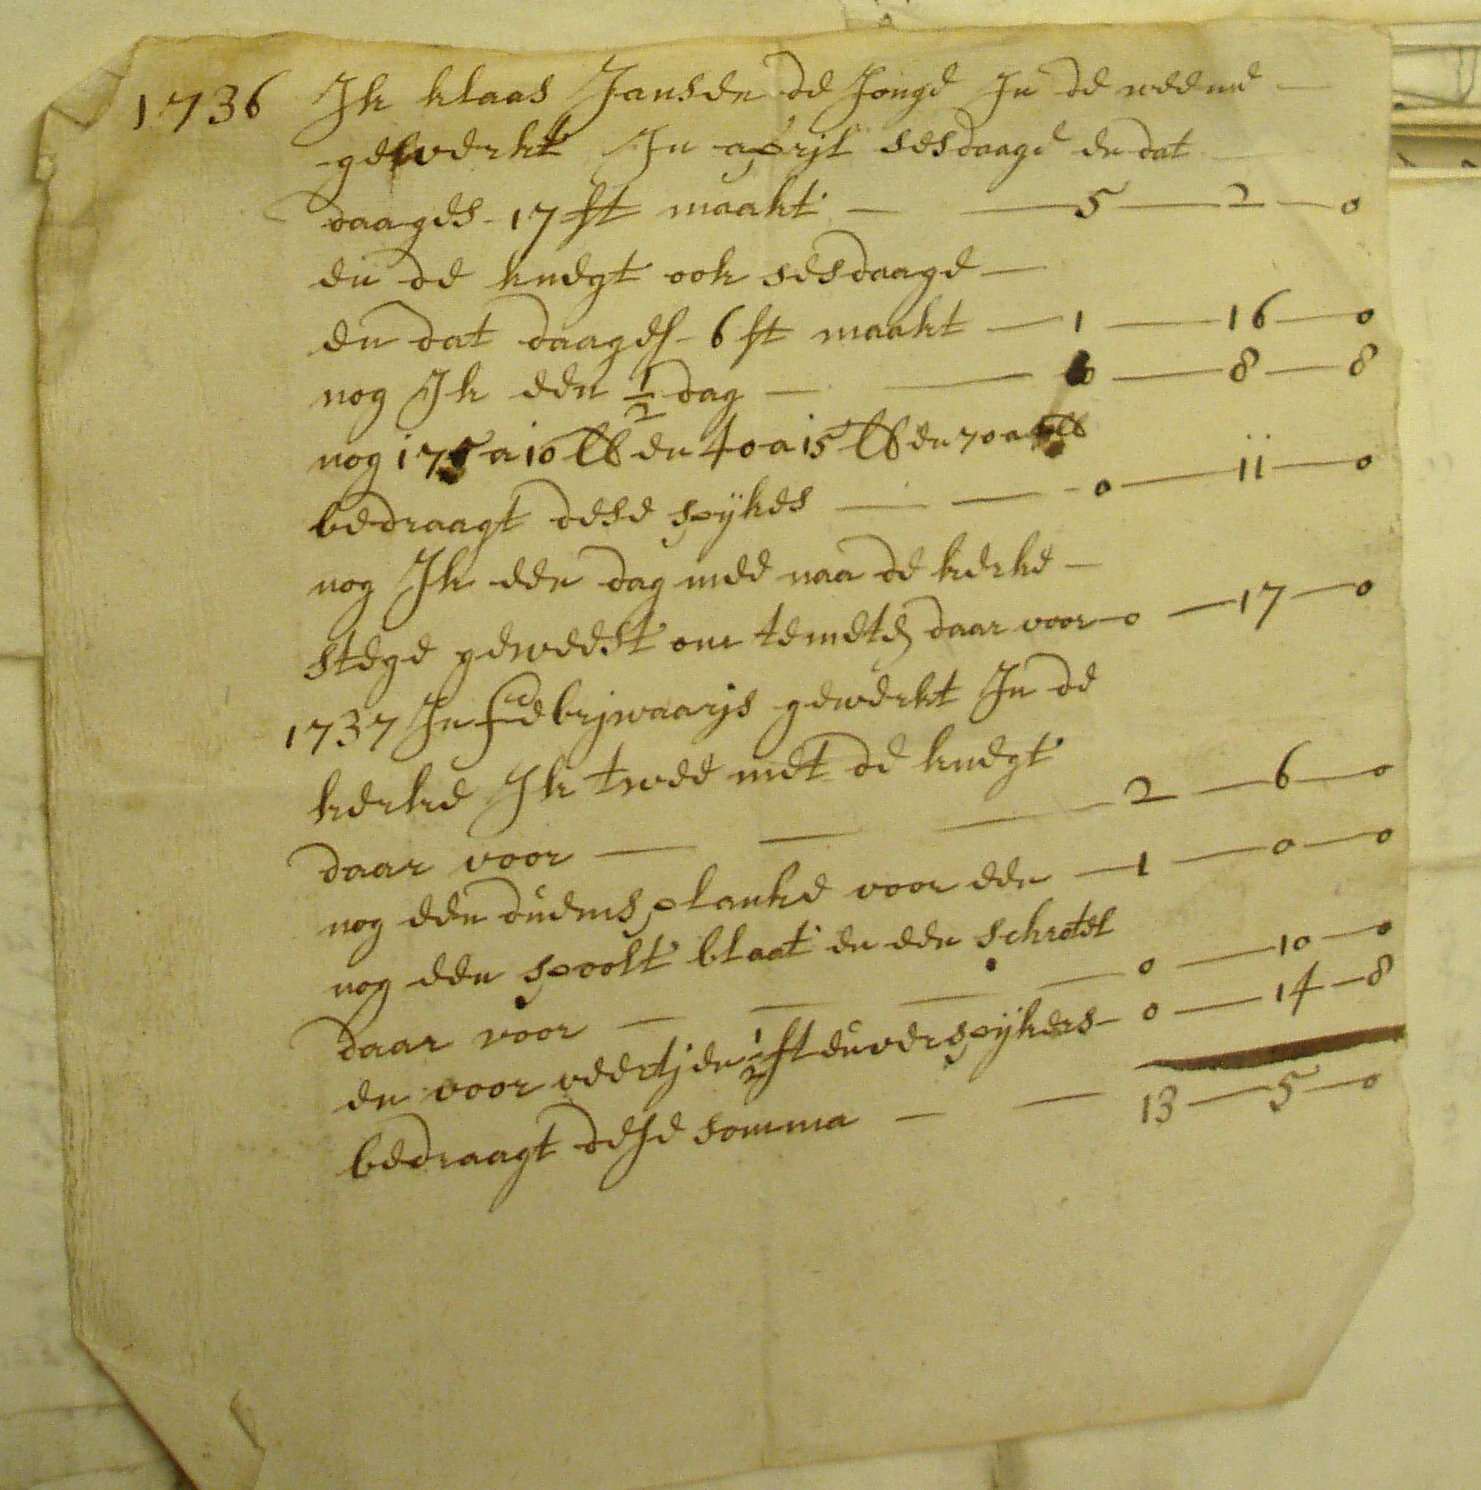 1736 Ik klaas Jansen de Jonge In de weeme —
gewerkt In aprjl sesdaage en dat —
daages - 17 st maakt — — 5 — 2 — 0
en de knegt ook sesdaage —
en dat daages - 6 st maakt — 1 — 16 — 0
nog Ik een 1/2 dag — — 0 — 8 — 8
nog 175 a 10 lb en 40 a 15 lb en 70 a lb
bedraagt dese spÿkes — — 0 — 11 — 0
nog Ik een dag mee naa de kerke —
stege geweest om te meten daar voor — 0 — 17 — 0
1737 In feebrjwaarjs gewerkt In de
kerke Ik twee met de knegt
daar voor — — — 2 — 6 — 0
nog een duems planke voor een — 1 — 0 — 0
nog een spoolt blaat en een schrotel
daar voor — — — 0 — 10 — 0
en voor veertjen 1/2 st en verspÿkers — 0 — 14 — 8
bedraagt dese somma — — 13 — 5 — 0